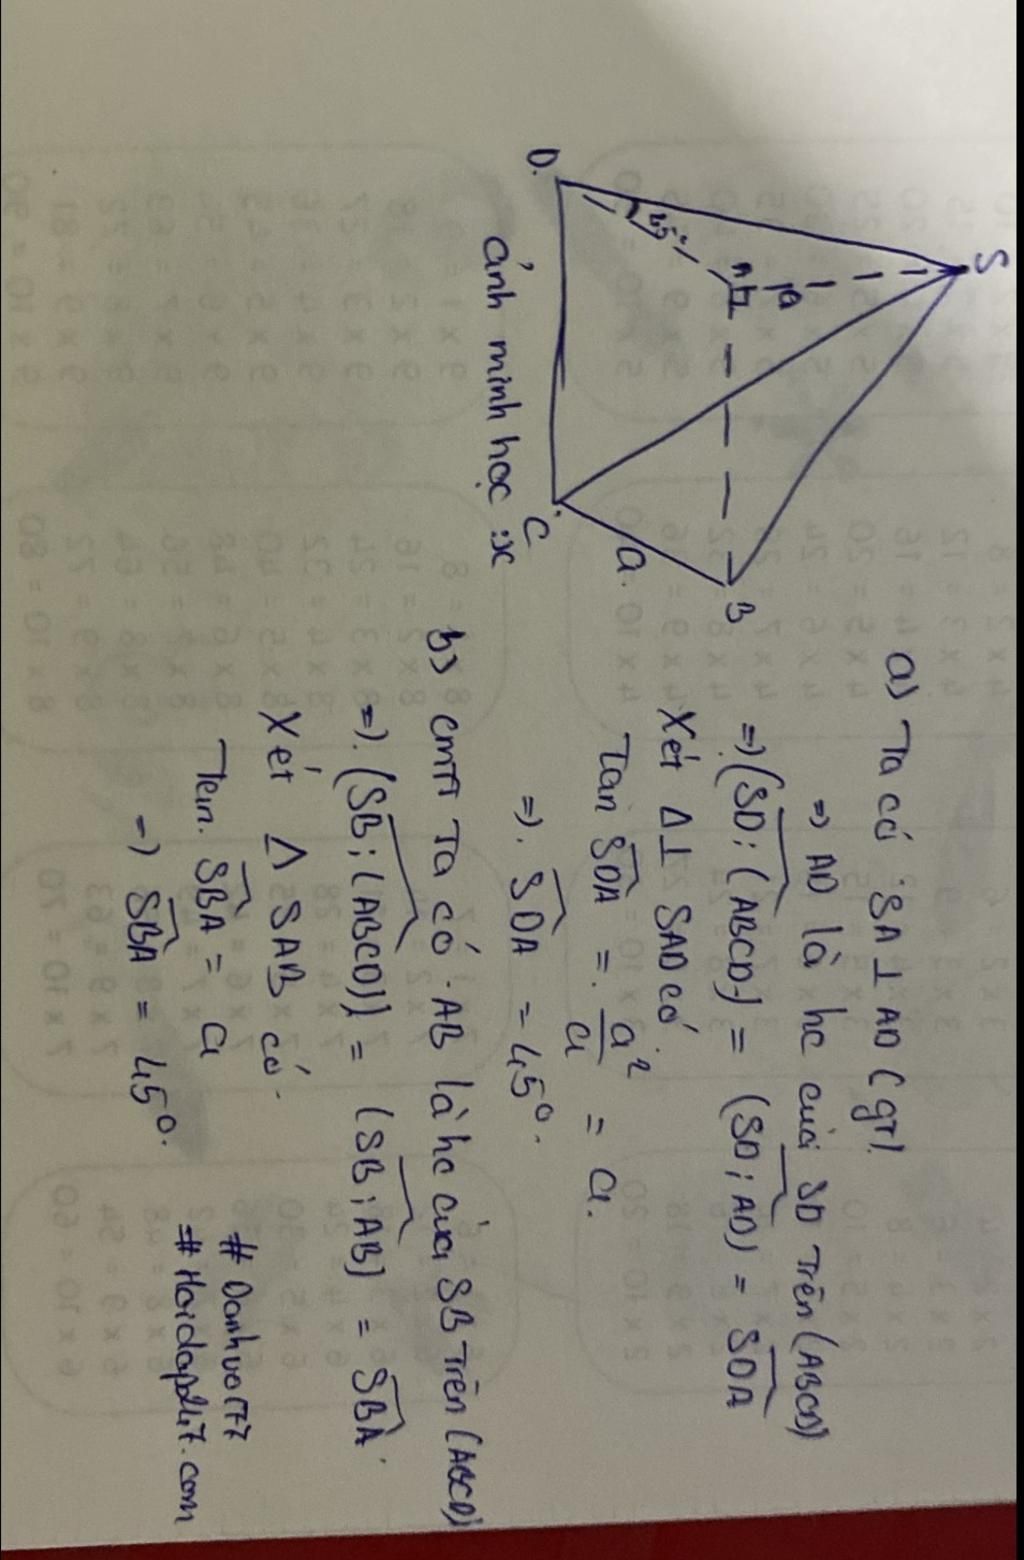 S
a
45°
D
C
B
a
ảnh minh học :x
a) Ta có : SA ⊥ AD (gt).
=> AD là hc của SD trên (ABCD)
=> (SD; (ABCD)) = (SD; AD) = SDA
Xét Δ⊥ SAD có.
Tan SDA = a²/a = a.
=>. SDA = 45°.
b) CMTT Ta có : AB là hc của SB trên (ABCD)
=>. (SB; (ABCD)) = (SB; AB) = SBA.
Xét Δ SAB có.
Tan. SBA = a
=> SBA = 45°.
# Danhvo177
# Hoidap247.com